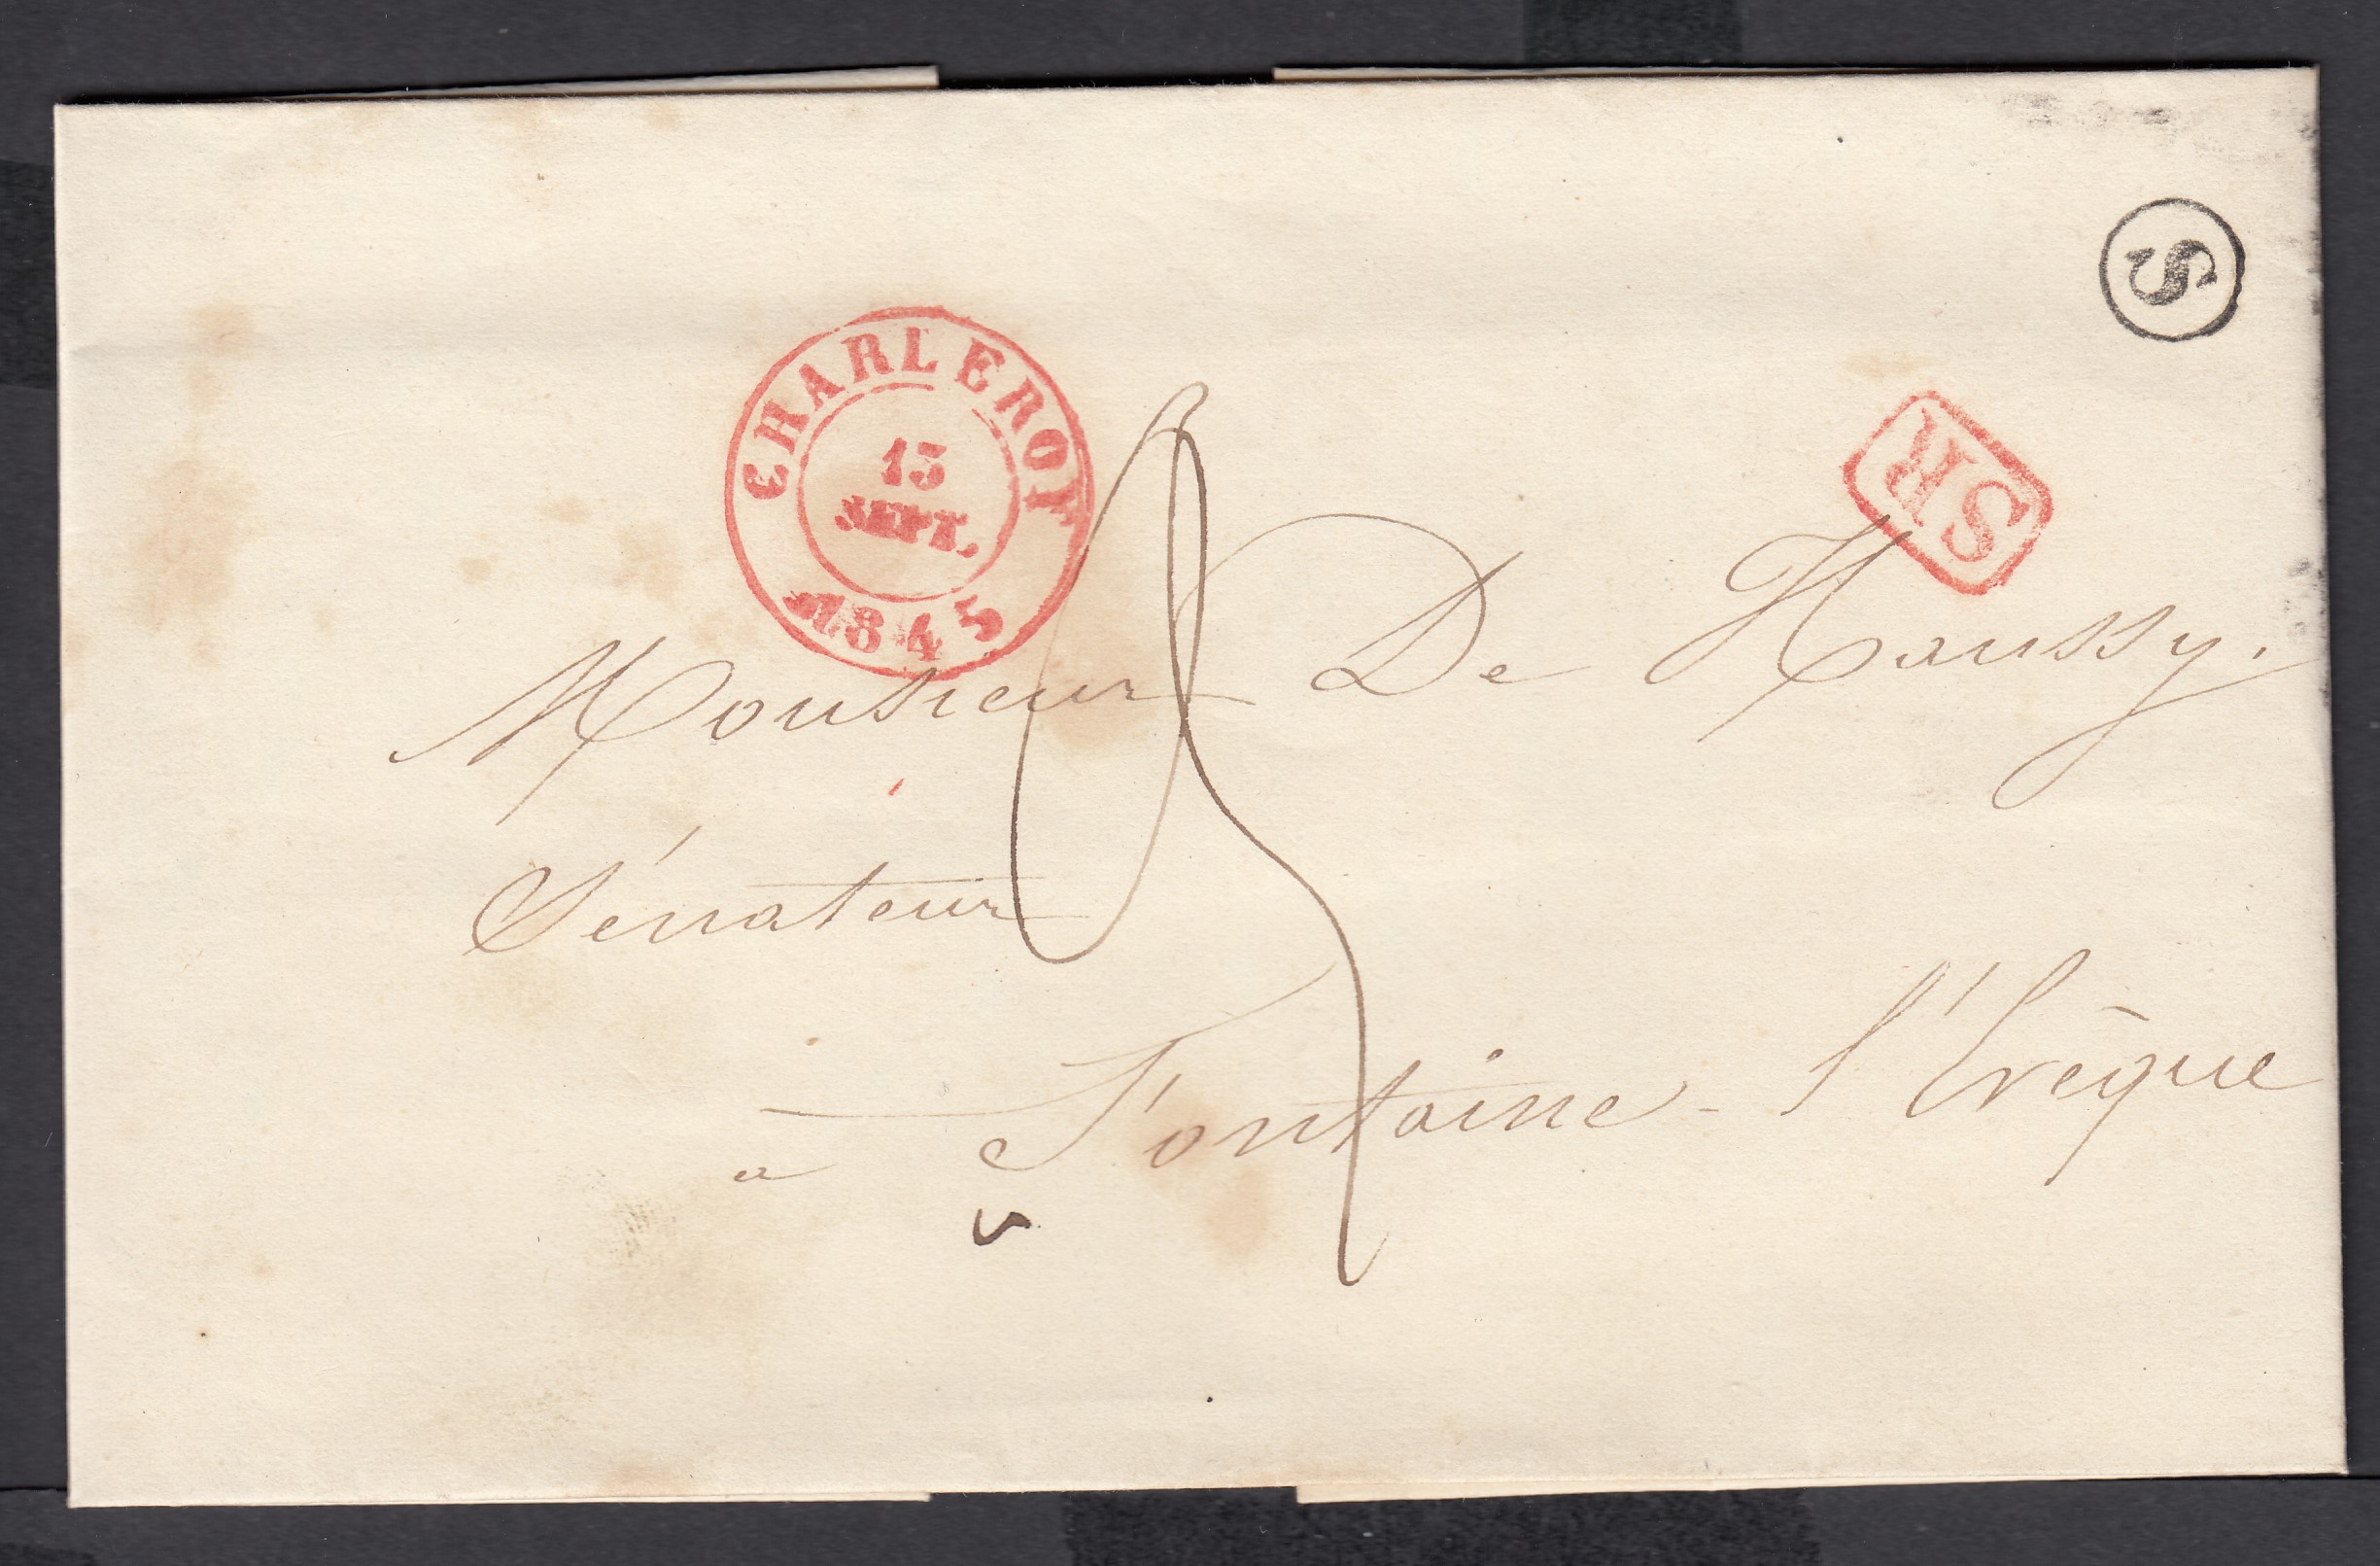 S
CHARLEROY
15
SEPT.
1845
SR
Monsieur De Haussy.
Sénateur
à Fontaine-l'Evêque